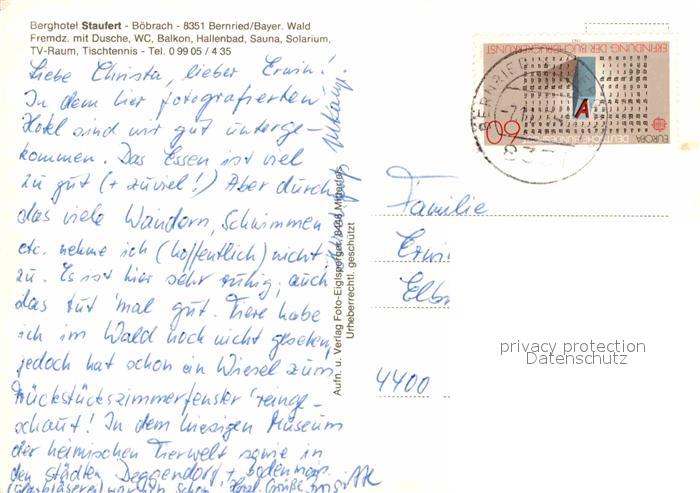 Berghotel Staufert - Böbrach - 8351 Bernried/Bayer. Wald
Fremdz. mit Dusche, WC, Balkon, Hallenbad, Sauna, Solarium,
TV-Raum, Tischtennis - Tel. 0 99 05 / 4 35
Liebe Christa, lieber Erwin!
In dem hier fotografierten
Hotel sind wir gut unterge-
kommen. Das Essen ist viel
zu gut (+ zuviel!) Aber durch
das viele Wandern, Schwimmen
etc. nehme ich (hoffentlich) nicht
zu. Es ist hier sehr ruhig, auch
das tut 'mal gut. Tiere habe
ich im Wald noch nicht gesehen,
jedoch hat schon ein Wiesel zum
Frückstückszimmerfenster 'reinge-
schaut! In dem hiesigen Museum
der heimischen Tierwelt sowie in
den Städten Deggendorf + Bodenmais
(Glasbläserei) waren wir schon. Herzl. Grüße
Aufn. u. Verlag Foto-Eiglsperger,
Urheberrechtl. geschützt
ERFINDUNG DER BUCHDRUCKERKUNST
DEUTSCHE BUNDESPOST
EUROPA
60
A
BERNRIED
8351
Familie
Erwi
Elb
4400
privacy protection
Datenschutz